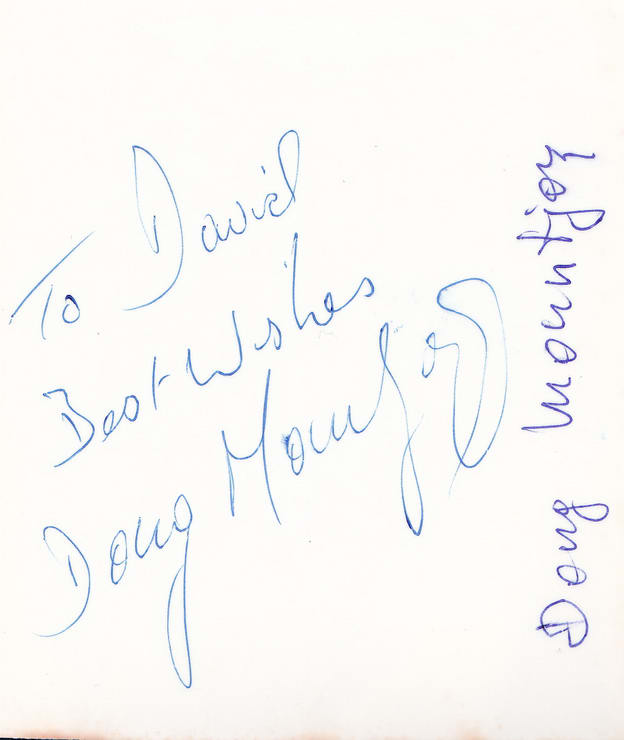 To David
Best Wishes
Doug Mountjoy
Doug Mountjoy